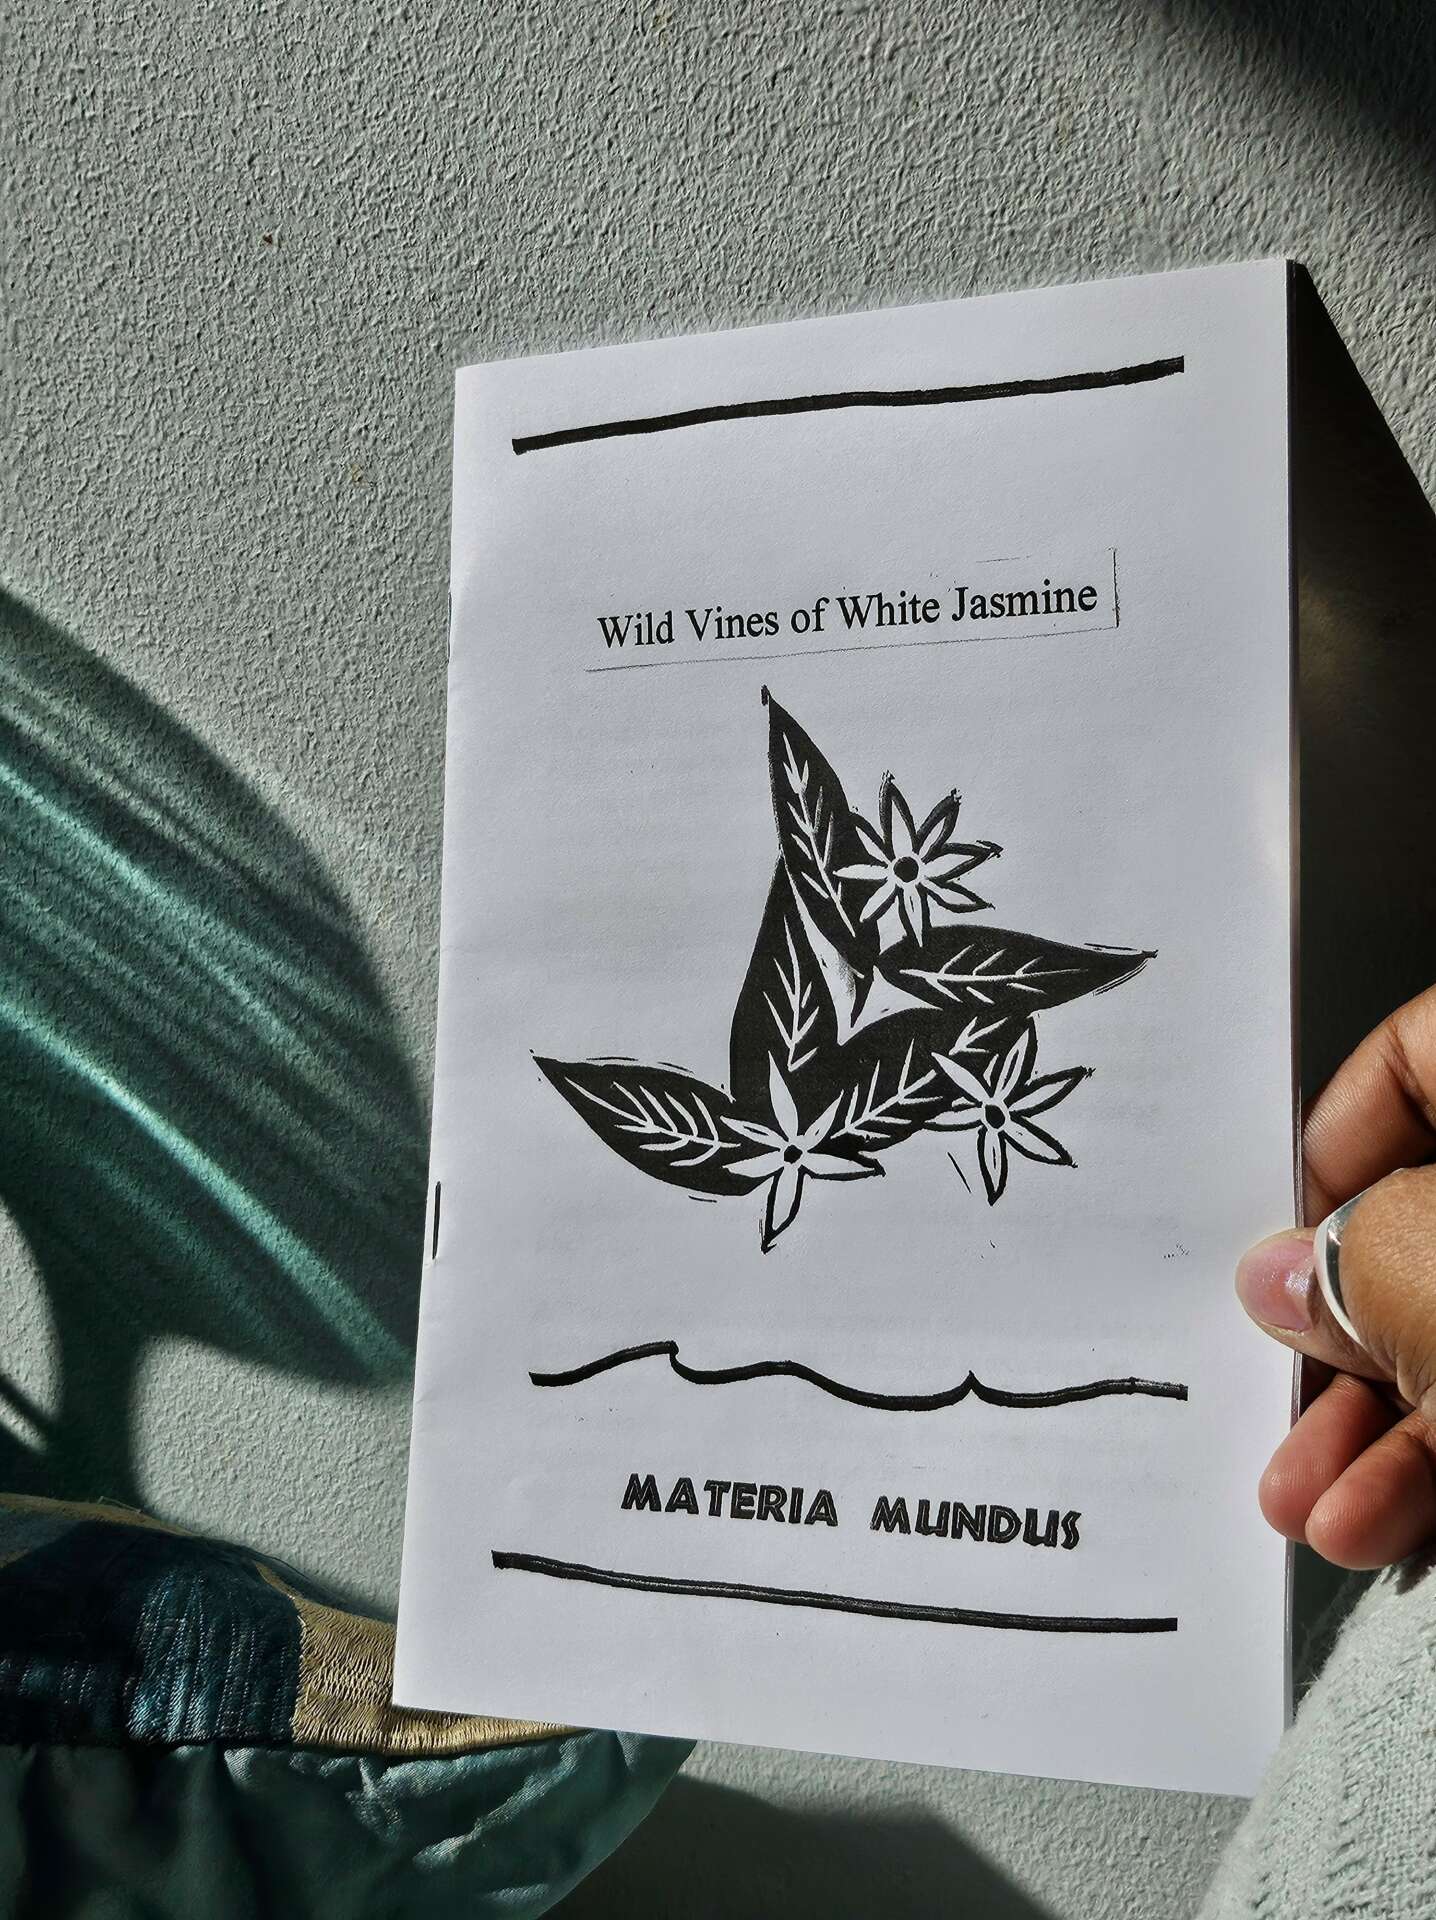 Wild Vines of White Jasmine
MATERIA MUNDUS